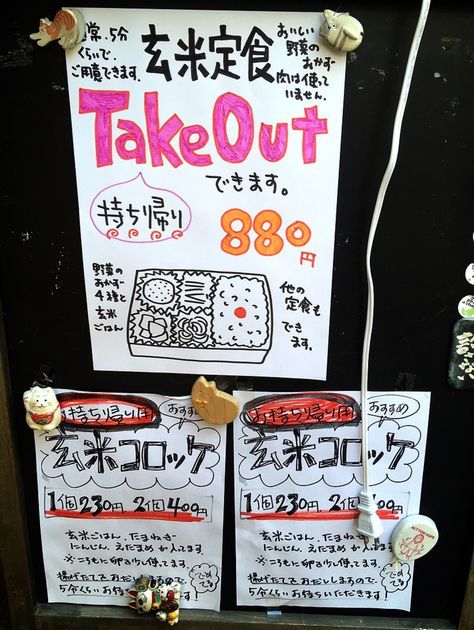 常.5分
くらいで、
ご用意できます。
玄米定食
おいしい
野菜の
おかず
肉は使って
いません。
Take Out
できます。
持ち帰り
880円
野菜の
おかず
4種と
玄米
ごはん
他の
定食も
でき
ます。
お持ち帰りは
おすすめ
玄米コロッケ
1個230円 2個400円
玄米ごはん、たまねぎ
にんじん、えだまめ が入ってます。
揚げたてをお出しするので、
5分くらい
お持ち帰りは
おすすめ
玄米コロッケ
1個230円 2個400円
玄米ごはん、たまねぎ
にんじん、えだまめ が入ってます。
揚げたてをお出しするので、
5分くらいお待ちいただきます!